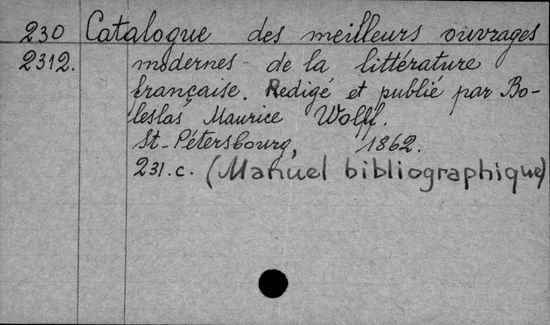 230 Catalogue des meilleurs ouvrages
2312. modernes de la littérature
française. Redigé et publié par Bo-
leslas Maurice Wolff.
St-Pétersbourg, 1862.
231.c. (Manuel bibliographique)